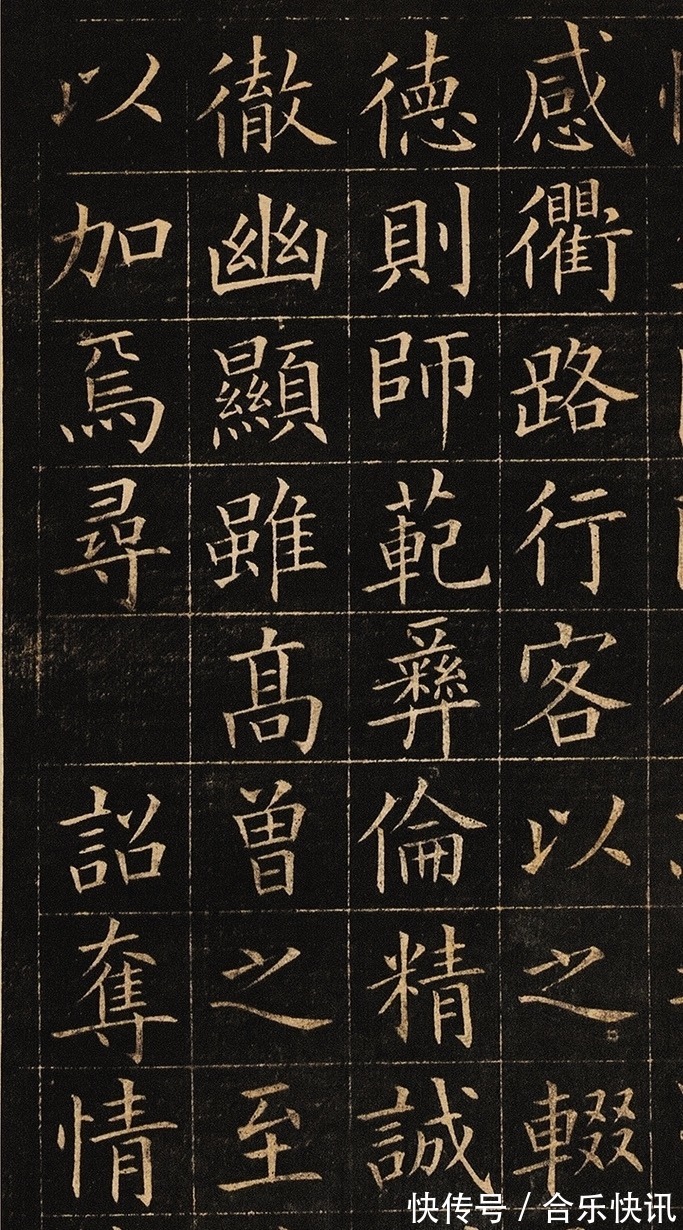 感衢路行客以之輟
德則師範彝倫精誠
徹幽顯雖高曾之至
以加焉尋 詔奪情
快传号 / 合乐快讯